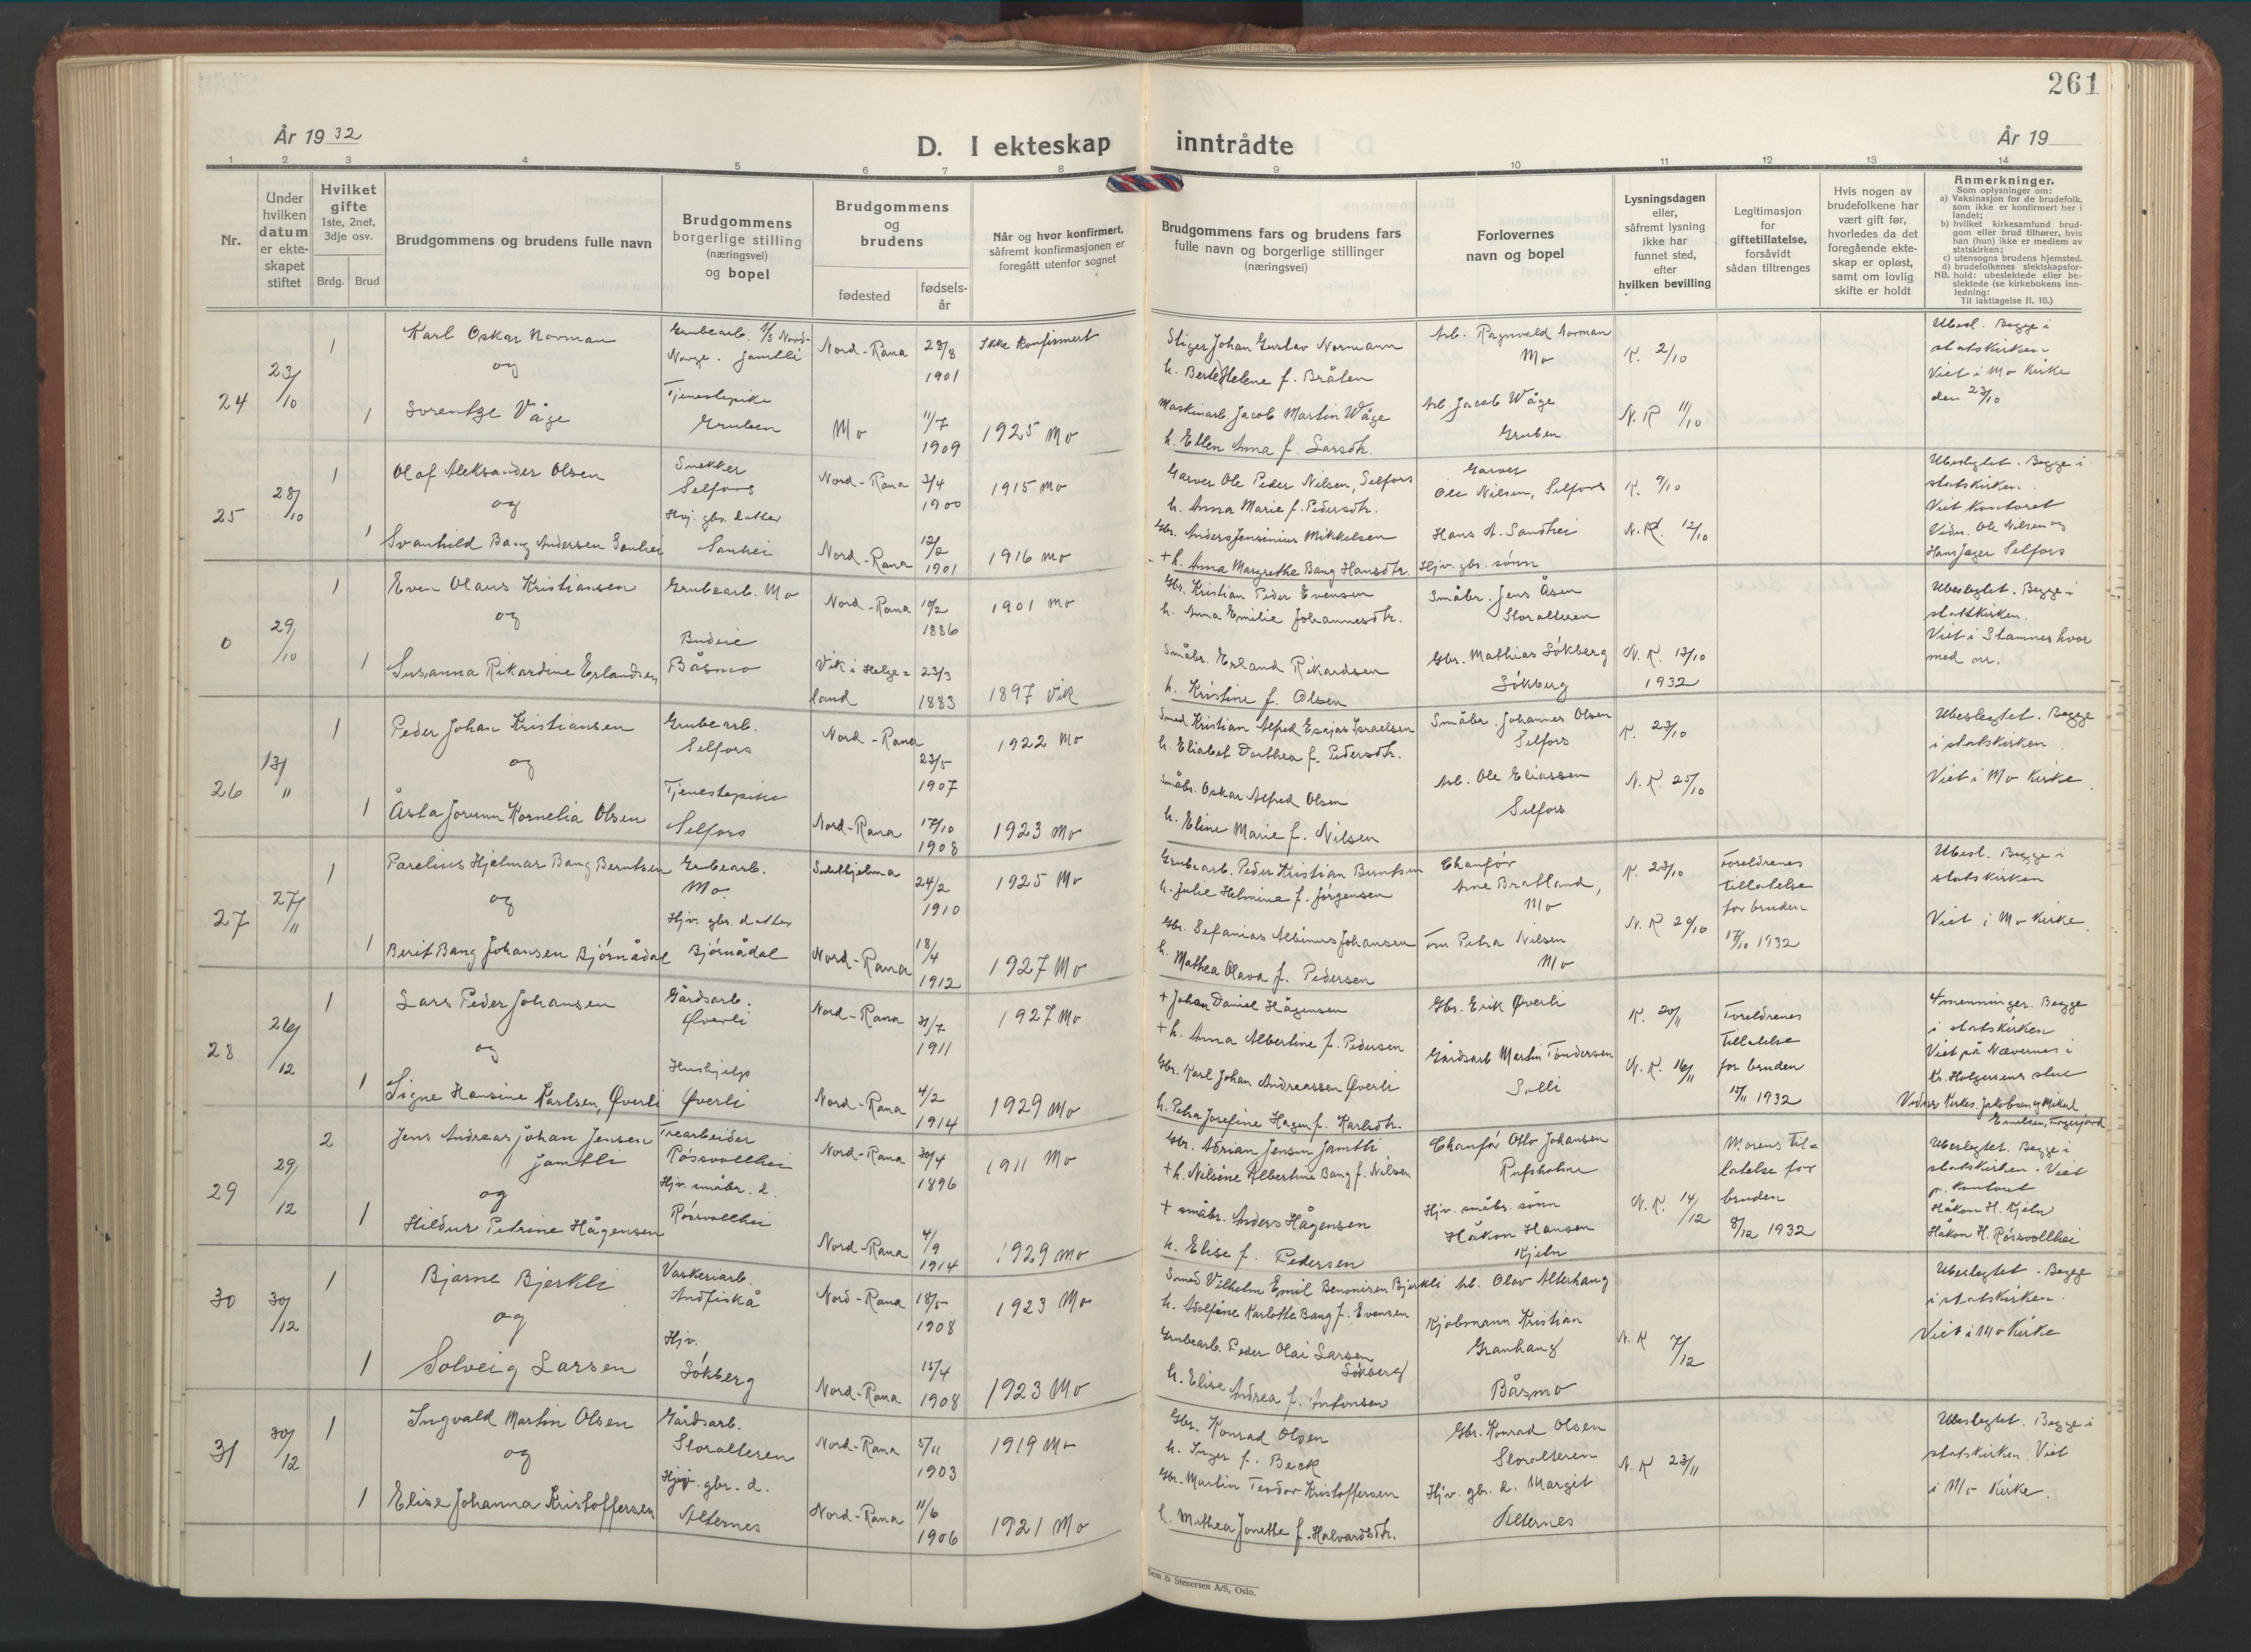 261
År 1932
D. I ekteskap inntrådte
År 19
1 2 3 4 5 6 7 8 9 10 11 12 13 14
Nr.
Under
hvilken
datum
er ekte-
skapet
stiftet
Hvilket
gifte
1ste, 2net,
3dje osv.
Brdg. Brud
Brudgommens og brudens fulle navn
Brudgommens
borgerlige stilling
(næringsvei)
og bopel
Brudgommens
og
brudens
fødested
fødsels-
år
Når og hvor konfirmert,
såfremt konfirmasjonen er
foregått utenfor sognet
Brudgommens fars og brudens fars
fulle navn og borgerlige stillinger
(næringsvei)
Forlovernes
navn og bopel
Lysningsdagen
eller,
såfremt lysning
ikke har
funnet sted,
efter
hvilken bevilling
Legitimasjon
for
giftetillatelse,
forsåvidt
sådan tiltrenges
Hvis nogen av
brudefolkene har
vært gift før,
hvorledes da det
foregående ekte-
skap er opløst,
samt om lovlig
skifte er holdt
Anmerkninger.
Som oplysninger om:
a) Vaksinasjon for de brudefolk,
som ikke er konfirmert her i
landet;
b) hvilket kirkesamfund brud-
gom eller brud tilhører, hvis
han (hun) ikke er medlem av
statskirken;
c) utensogns brudens hjemsted.
d) brudefolkenes slektskapsfor-
NB. hold: ubeslektede eller be-
slektede (se kirkebokens inn-
ledning:
Til iakttagelse II. 10.)
24
23/10
1
Karl Oskar Norman
og
1
Sorentze Våge
Grubearb. A/S Nord-
Norge. Jamtli
Tjenestepike
Gruben
Nord-Rana
28/8
1901
Ikke konfirmert
Mo
11/7
1909
1925 Mo
Stiger Johan Gustav Normann
h. Berte Helene f. Bråten
Maskinarb. Jacob Martin Wåge
h. Ellen Anna f. Larsdtr.
Arb. Ragnvald Norman
Mo
Arb. Jacob Wåge
Gruben
K. 2/10
N. R 11/10
Ubesl. Begge i
statskirken
Viet i Mo Kirke
den 23/10
25
28/10
1
Olaf Aleksander Olsen
og
1
Svanhild Bang Andersen Sanhei
Snekker
Selfors
Hvj. gbr. datter
Sanhei
Nord-Rana
3/4
1900
1915 Mo
Nord-Rana
12/2
1901
1916 Mo
Garver Ole Peder Nilsen, Selfors
h. Anna Marie f. Pedersdtr.
Gbr. Anders Jensenius Mikkelsen
+ h. Anna Margrethe Bang Hansdtr.
Garver
Ole Nilsen, Selfors
Hans A. Sandhei
Hjv. gbr. sønn
K. 9/10
N. R. 12/10
Ubeslegtet. Begge i
statskirken.
Viet Kontoret
Vidn. Ole Nilsen og
Hans Jæger Selfors
0
29/10
1
Even Olaus Kristiansen
og
1
Susanna Rikardine Erlandsen
Grubearb. Mo
Budeie
Båsmo
Nord-Rana
10/2
1886
1901 Mo
Vik i Helge=
land
23/3
1883
1897 Vik
Gbr. Kristian Peder Evensen
h. Anna Emilie Johannesdtr.
Småbr. Erland Rikardsen
h. Kristine f. Olsen
Småbr. Jens Åsen
Storalteren
Gbr. Mathias Søkberg
Søkberg
N. K. 13/10
1932
Ubeslegtet. Begge i
statskirken.
Viet i Stamnes hvor
med av.
26
13/11
1
Peder Johan Kristiansen
og
1
Åsta Jorunn Kornelia Olsen
Grubearb.
Selfors
Tjenestepike
Selfors
Nord-Rana
23/5
1907
1922 Mo
Nord-Rana
17/10
1908
1923 Mo
Smed Kristian Alfred Esajas Israelsen
h. Eliabet Dorthea f. Pedersdtr.
Småbr. Oskar Alfred Olsen
h. Eline Marie f. Nilsen
Småbr. Johannes Olsen
Selfors
Arb. Ole Eliassen
Selfors
K. 23/10
N. K. 25/10
Ubeslegtet. Begge
i statskirken.
Viet i Mo Kirke.
27
27/11
1
Parelius Hjelmar Bang Berntsen
og
1
Berit Bang Johansen Bjørnådal
Grubearb.
Mo.
Hjv. gbr. datter
Bjørnådal
Sulithjelma
24/2
1910
1925 Mo
Nord-Rana
18/4
1912
1927 Mo
Grubearb. Peder Kristian Berntsen
h. Julie Helmine f. Jørgensen
Gbr. Sefanias Albinus Johansen
h. Mathea Olava f. Pedersen
Chauför
Arne Bratland,
Mo
Fru Petra Nilsen
Mo
K. 23/10
N. R 29/10
Foreldrenes
tillatelse
for bruden
17/10 1932
Ubesl. Begge i
statskirken
Viet i Mo Kirke.
28
26/12
1
Lars Peder Johansen
og
1
Signe Hansine Karlsen, Øverli
Gårdsarb.
Øverli
Hushjelp
Øverli
Nord-Rana
31/7
1911
1927 Mo
Nord-Rana
4/2
1914
1929 Mo
+ Johan Daniel Hågensen
+ h. Anna Albertine f. Pedersen
Gbr. Karl Johan Andreassen Øverli
h. Petra Josefine Hagen f. Karlsdtr.
Gbr. Erik Øverli
Gårdsarb Martin Tøndersen
Solli
K. 20/11
N. K. 16/11
Foreldrenes
tillatelse
for bruden
15/11 1932
4menninger. Begge
i statskirken
Viet på Nævernes i
Kr. Holgersens stue
Vidner Kirkes. Jakobsen og Mikal
Emilsen,
29
29/12
2
Jens Andreas Johan Jensen
Jamtli
og
1
Hildur Petrine Hågensen
Trearbeider
Røssvollhei
Hjv. småbr. d.
Røsvollhei
Nord-Rana
30/4
1896
1911 Mo
Nord-Rana
4/9
1914
1929 Mo
Gbr. Adrian Jensen Jamtli
+ h. Nilsine Albertine Bang f. Nilsen
+ småbr. Anders Hågensen
h. Elise f. Pedersen
Chauför Otto Johansen
Rufsholm
Hjv. småbr. sønn
Håkon Hansen
Kjeln
N. K. 14/12
Morens til=
latelse for
bruden
8/12 1932
Ubeslegtet. Begge i
statskirken. Viet
p. Kontoret
Håkon H. Kjeln
Håkon H. Røsvollhei
30
30/12
1
Bjarne Bjerkli
og
1
Solveig Larsen
Vaskeriarb.
Andfiskå
Hjv.
Søkberg
Nord-Rana
18/5
1908
1923 Mo
Nord-Rana
15/4
1908
1923 Mo
Smed Vilhelm Emil Benonisen Bjerkli
h. Adolfine Karlotte Bang f. Evensen
Grubearb. Peder Olai Larsen
Søkberg
h. Elise Andrea f. Antonsen
Arb. Olav Alterhaug
Kjøbmann Kristian
Granhaug
Båsmo
N. K 7/12
Ubeslegtet. Begge
i statskirken.
Viet i Mo Kirke
31
30/12
1
Ingvald Martin Olsen
og
1
Elise Johanna Kristoffersen
Gårdsarb.
Storalteren
Hjv. gbr. d.
Alternes
Nord-Rana
5/11
1903
1919 Mo
Nord-Rana
11/6
1906
1921 Mo
Gbr. Konrad Olsen
h. Inger f. Beck
Gbr. Martin Teodor Kristoffersen
h. Mathea Jonette f. Halvardsdtr.
Gbr. Konrad Olsen
Storalteren
Hjv. gbr. d. Margit
Alternes
N. K 23/11
Ubeslegtet. Begge i
statskirken. Viet
i Mo Kirke.
Sem & Stenersen A/S, Oslo.